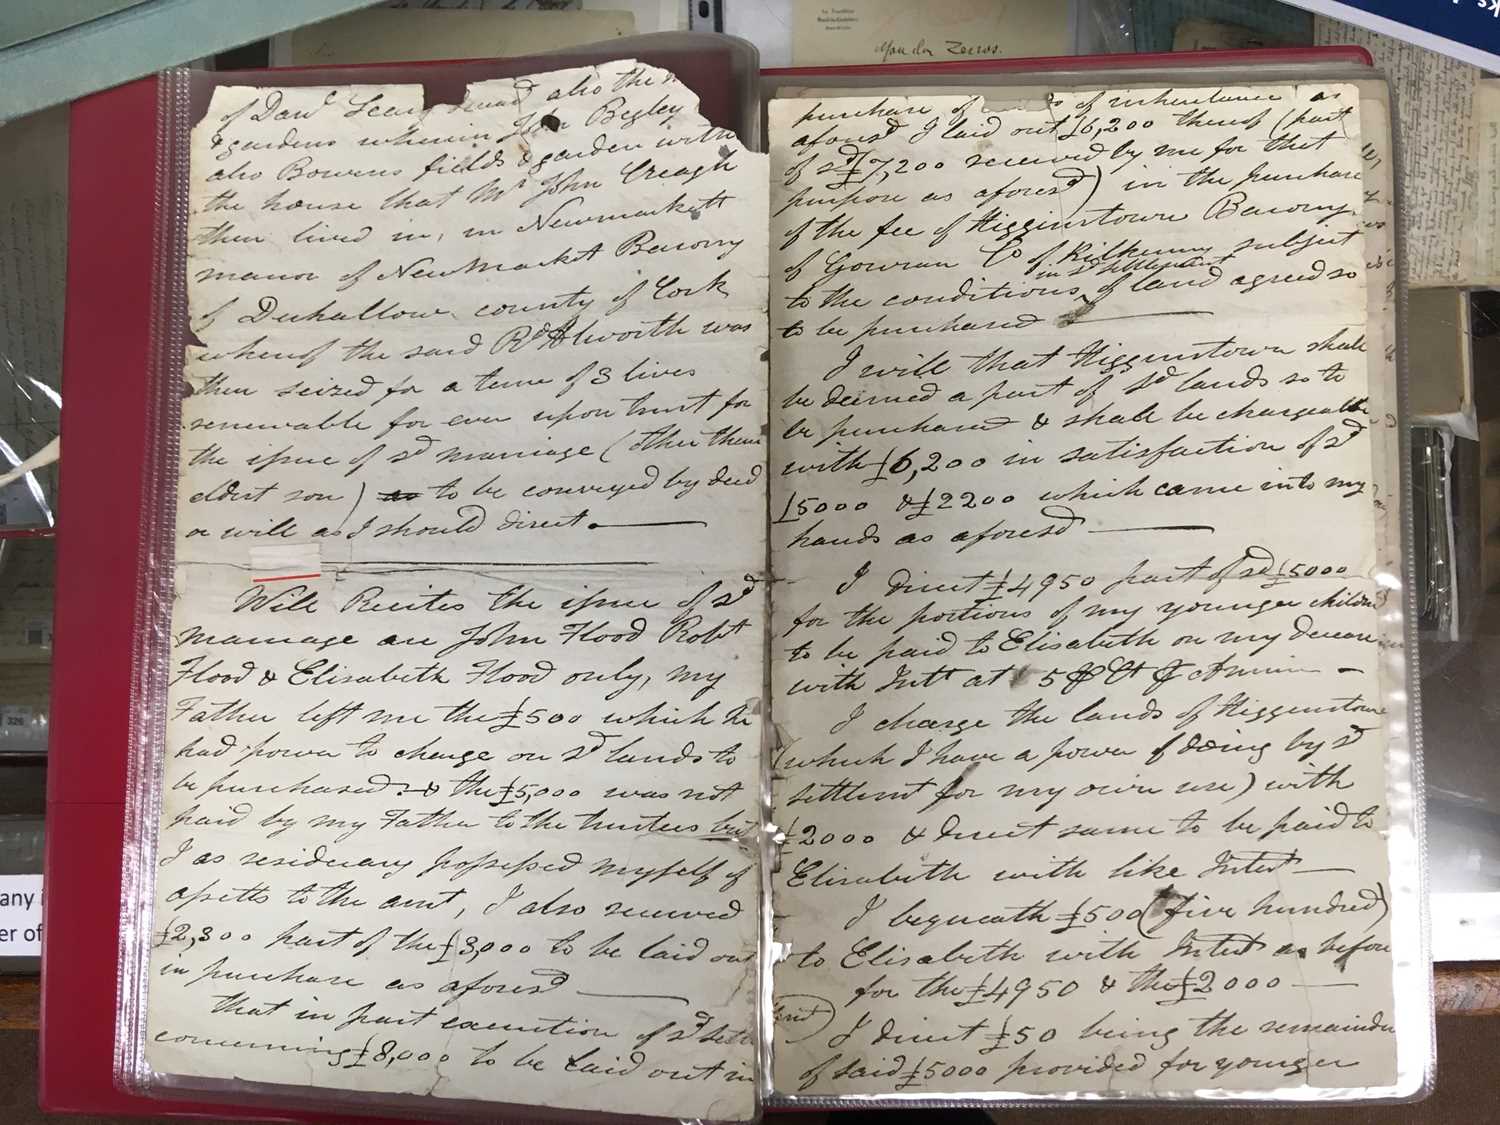 of Danl Leary also the
& gardens wherein John Begley
also Bowens fields & garden with
the house that Mr John Creagh
then lived in, in Newmarkett
manor of NewMarket Barony
of Duhallow county of Cork
whereof the said Rd Alworth was
then seized for a term of 3 lives
renewable for ever upon trust for
the issue of sd marriage (other then
eldest son) to be conveyed by deed
or will as I should direct.
Will Recites the issue of sd
marriage are John Flood Robt
Flood & Elisabeth Flood only, my
Father left me the £500 which he
had power to charge on sd lands to
be purchased & the £5,000 was not
paid by my Father to the trustees but
I as residuary possessed myself of
assetts to the amt, I also received
£2,300 part of the £3,000 to be laid out
in purchase as aforesd
That in part execution of sd settl
concerning £8,000 to be laid out in
purchase of of inheritance as
aforesd I laid out £6,200 thereof (part
of sd £7,200 received by me for that
purpose as aforesd) in the purchase
of the fee of Higginstown Barony
of Gowran Co of Kilkenny subject
in sd settlement
to the conditions of land agreed so
to be purchased
I will that Higginstown shall
be deemed a part of sd lands so to
be purchased & shall be chargeable
with £6,200 in satisfaction of sd
£5000 & £2200 which came into my
hands as aforesd
I direct £4950 part of sd £5000
for the portions of my younger children
to be paid to Elisabeth on my decease
with Intt at 5 P Ct P Annum
I charge the lands of Higginstown
(which I have a power of doing by sd
settlemt for my own use) with
£2000 & direct same to be paid to
Elisabeth with like Intst
I bequeath £500 (five hundred)
to Elisabeth with Intst as before
for the £4950 & the £2000
I direct £50 being the remainder
of said £5000 provided for younger
Yan der Zeeros.
326
any i
er of